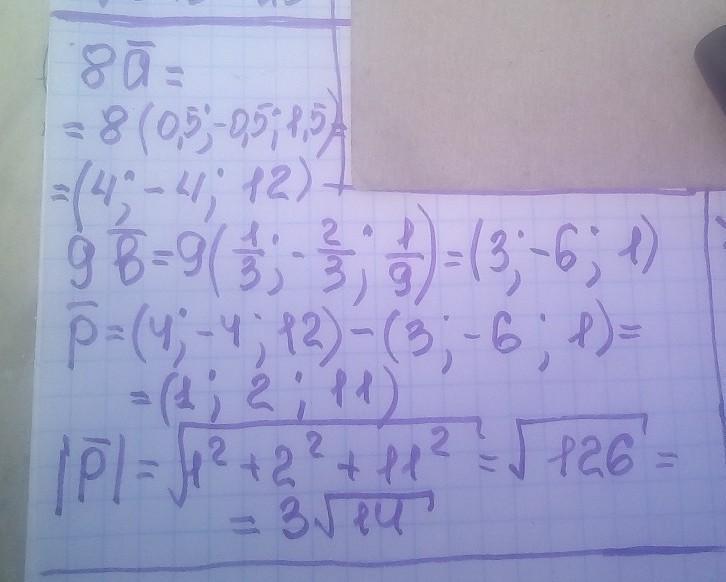 8ā =
= 8 (0,5; -0,5; 1,5) =
= (4; - 4; 12)
9 b̄ = 9 (1/3; - 2/3; 1/9) = (3; -6; 1)
p̄ = (4; -4; 12) - (3; -6; 1) =
= (1; 2; 11)
|p̄| = √(1² + 2² + 11²) = √126 =
= 3√14